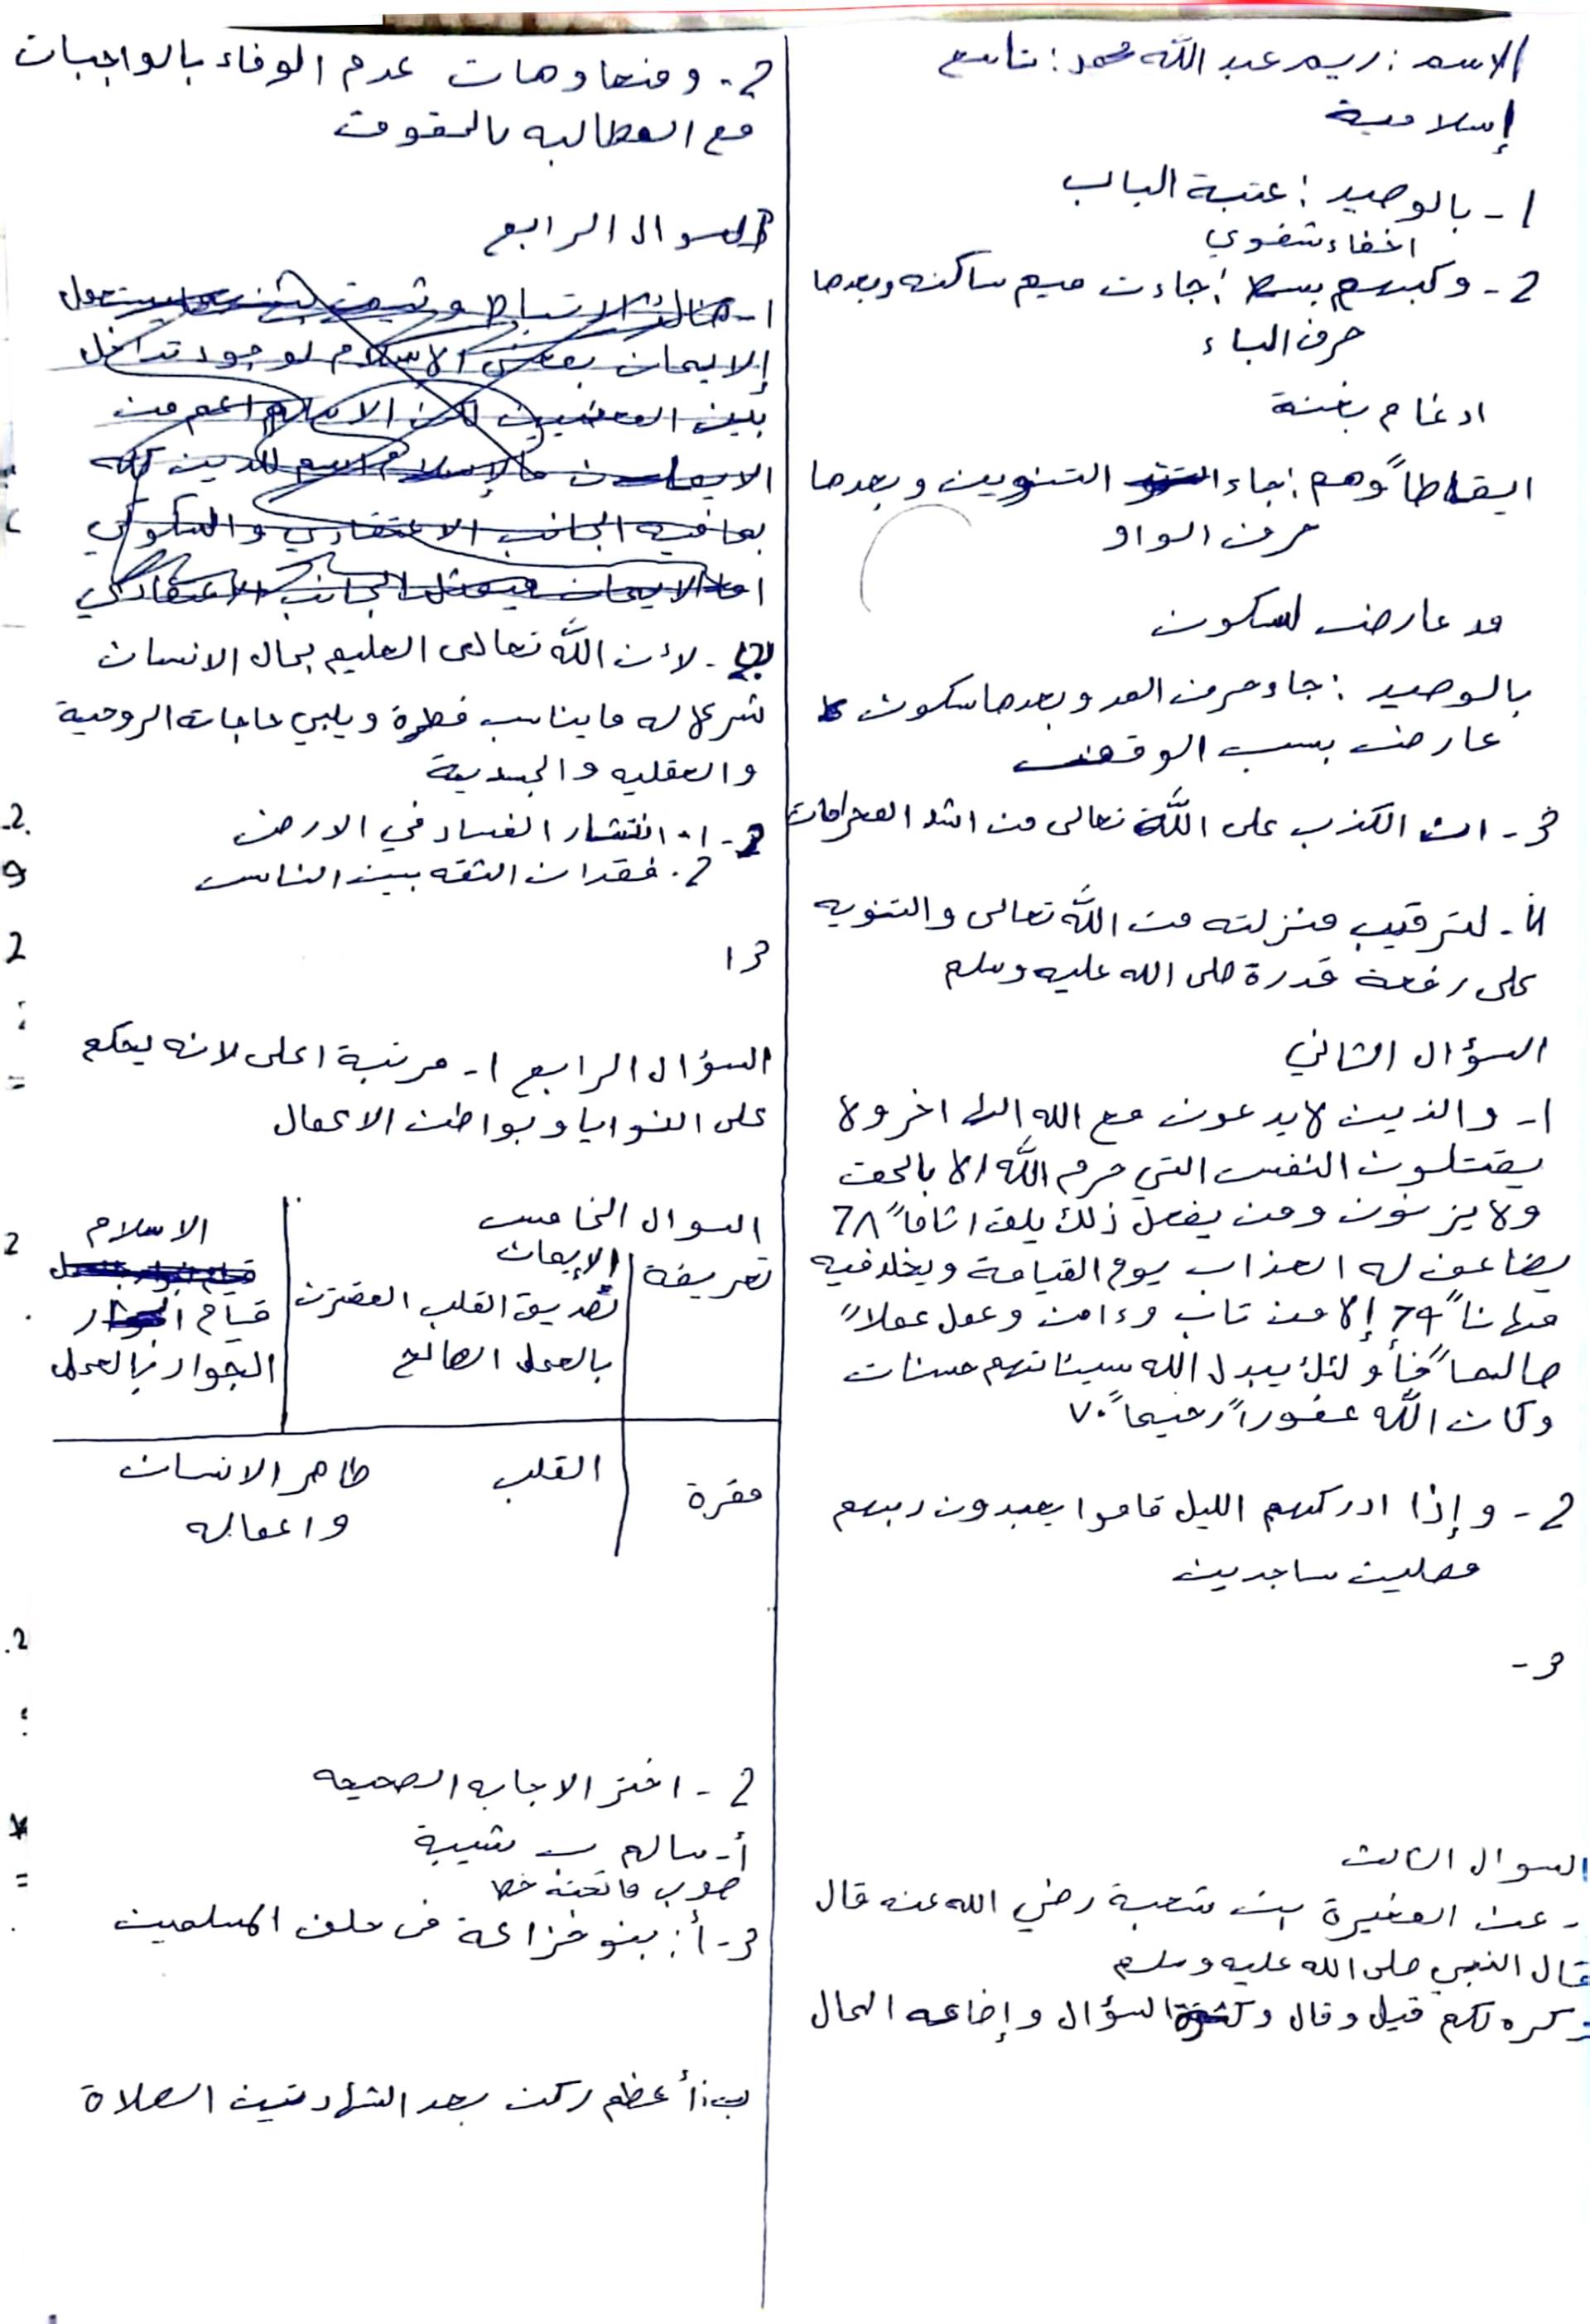 الاسم: ريم عبد الله محمد: تاسع
إسلامية
1- بالوصيد: عتبة الباب
اخفاء شفوي
2- وكلبهم بسط: جاءت ميم ساكنه وبعدها
حرف الباء
ادغام بغنة
ايقاظاً وهم: جاء التنوين وبعدها
حرف الواو
مد عارض لسكون
بالوصيد: جاء حرف المد وبعدها سكون
عارض بسبب الوقف
3- ان الكذب على الله تعالى من اشد المحرامات
4- لترقيب منزلته من الله تعالى والتنويه
على رفعة قدرة صلى الله عليه وسلم
السؤال الثاني
1- والذين لا يدعون مع الله اله اخر ولا
يقتلون النفس التي حرم الله الا بالحق
ولا يزنون ومن يفعل ذلك يلق اثاماً 68
يضاعف له العذاب يوم القيامة ويخلد فيه
مهاناً 69 إلا من تاب وءامن وعمل عملاً
صالحاً فأولئك يبدل الله سيئاتهم حسنات
وكان الله غفوراً رحيماً 70
2- وإذا ادركهم الليل قاموا يعبدون ربهم
مصلين ساجدين
3-
السوال الثالث
- عن المغيرة ابن شعبة رضي الله عنه قال
قال النبي صلى الله عليه وسلم
كره لكم قيل وقال وكثرة السؤال وإضاعه المال
2- ومنعا وهات عدم الوفاء بالواجبات
مع المطالبه بالحقوق
السوال الرابع
لأن الله تعالى العليم بحال الانسان
شرع له ما يناسب فطرة ويلبي حاجاته الروحية
والعقليه والجسدية
2- 1- انتشار الفساد في الارض
2. فقدان الثقه بين الناس
3)
السؤال الرابع 1- مرتبة اعلى لانه يحكم
على النوايا وبواطن الاعمال
السوال الخامس
الإيمان الاسلام
تعريفة تصديق القلب المقترن قيام
بالعمل الصالح الجوارح بالعمل
مقرة القلب ظاهر الانسان
واعماله
2- اختر الاجابه الصحيحه
أ- سالم ب شيبة
صوب ماتحته خط
3- أ: بنو خزاعة في حلف المسلمين
ب: أعظم ركن بعد الشهادتين الصلاة